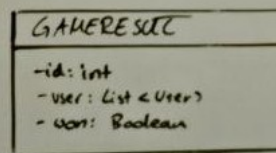 GAMERESULT
-id: int
- user: List <User>
- won: Boolean